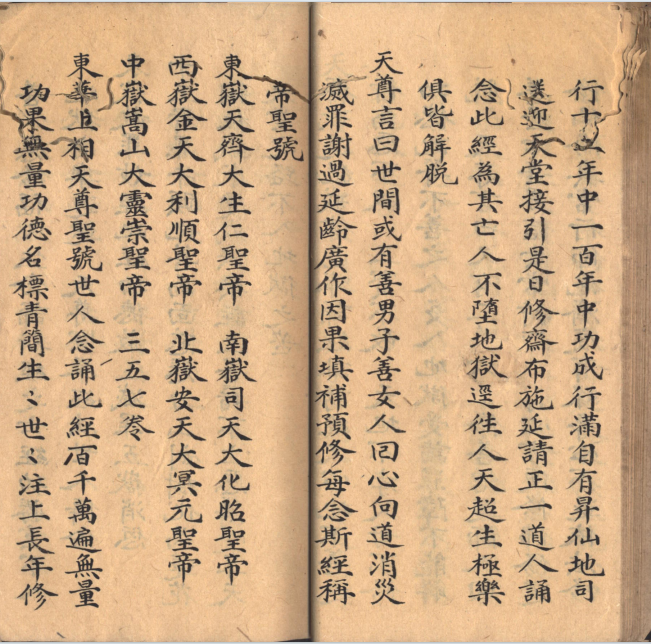 行十二年中一百年中功成行滿自有昇仙地司
送迎天堂接引是日修齋布施延請正一道人誦
念此經為其亡人不墮地獄逕往人天超生極樂
俱皆解脱
天尊言曰世間或有善男子善女人回心向道消災
滅罪謝過延齡廣作因果填補預修每念斯經稱
帝聖號
東嶽天齊大生仁聖帝　南嶽司天大化昭聖帝
西嶽金天大利順聖帝　北嶽安天大冥元聖帝
中嶽嵩山大靈崇聖帝　三五七卷
東華上相天尊聖號世人念誦此經百千萬遍無量
功果無量功德名標青簡生〻世〻注上長年修